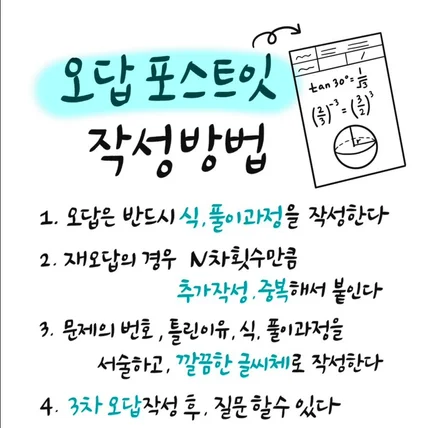 오답 포스트잇
작성방법
tan30°=1/√3
(2/3)⁻³=(3/2)³
r
1. 오답은 반드시 식, 풀이과정을 작성한다
2. 재오답의 경우 N차횟수만큼
추가작성, 중복해서 붙인다
3. 문제의 번호, 틀린이유, 식, 풀이과정을
서술하고, 깔끔한 글씨체로 작성한다
4. 3차 오답작성 후, 질문할수 있다